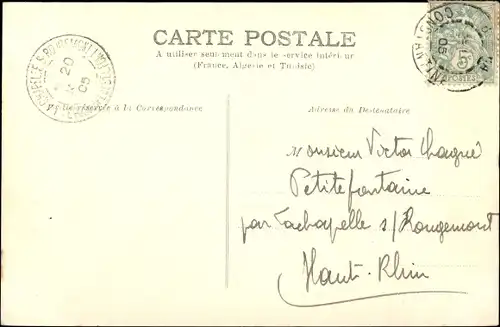 CARTE POSTALE
A utiliser seulement dans le service intérieur
(France, Algérie et Tunisie)
20
05
5
POSTES
Partie réservée à la Correspondance
Adresse du Destinataire
Monsieur Victor Chagué
Petitefontaine
par Lachapelle s/ Rougemont
Haut-Rhin